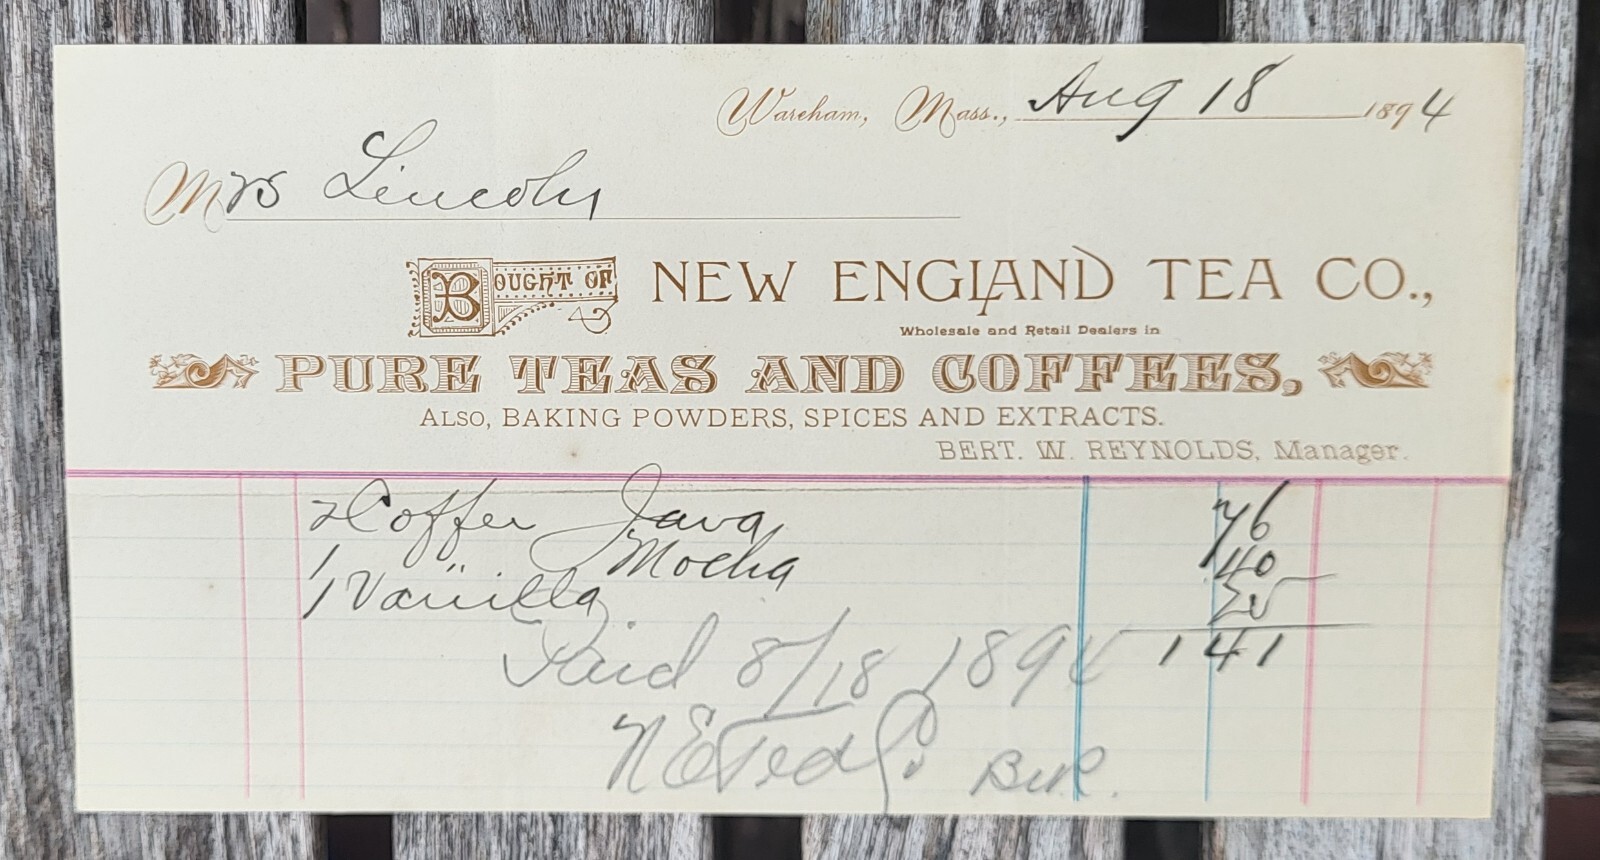 Wareham, Mass., Aug 18 1894
Mrs Lincoln
BOUGHT OF NEW ENGLAND TEA CO.,
Wholesale and Retail Dealers in
PURE TEAS AND COFFEES,
ALSO, BAKING POWDERS, SPICES AND EXTRACTS.
BERT. W. REYNOLDS, Manager.
2 Coffee Java 76
1 " Mocha 40
1 Vanilla 25
1 41
Paid 8/18 1894
N E Tea Co.
BWR.